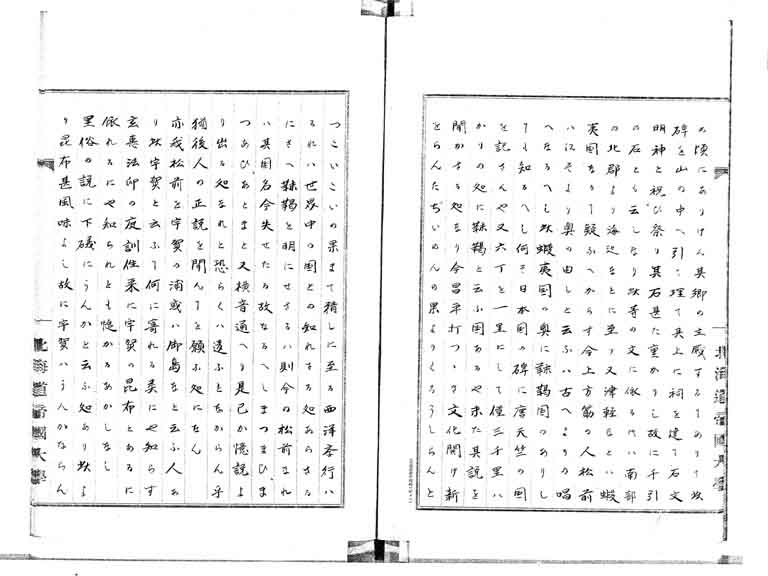 の頃にありけん具郷の主厳するにありて坂
碑を山の中へ引て埋て其上に祠を建て石文
明神と祝ひ祭り其石甚た重かりし故に千引
の石とも云しなり此等の文に依る代ハ南部
の北郡より海辺なとに至り又津軽なとハ蝦
夷国なりて疑ふへからす今上方筋の人松前
ハ江そより奥の由しと云ふハ古へよりの唱
へなるへし此蝦夷国の奥に靺鞨国のありし
て知るへし何そ日本国の碑に唐天竺の国
を記さんや又六丁を一里にして僅三千里ハ
かりの処に靺鞨と云ふ国あるや未た其説を
聞かさる処なり今昌平打つゝき文化開け新
とらんたぢいめんの果よりくろうしらんと
つこいこいの果まて積しに至る西洋斎行ハ
るれハ世界中の国との知れさる処あらさる
にさへ靺鞨と明にせさるハ則今の松前まれ
ハ其国名今失せたる故なるへしまつまひハま
つあひあとまと又横音通へり是己か憶説よ
り出る処なれと恐らくハ違ふとなからん乎
猶後人の正説を聞んてと願ふ処になん
亦我松前を宇賀の浦或ハ御島なと云ふ人あ
り此宇賀と云ふて何に寄れる義にや知らす
玄恵法印の庭訓往来に宇賀の昆布とあるに
依れるにや知られとも慥かるあかしなし
里俗の説に下磯にうんかと云ふ処あり此よ
り昆布甚風味よし故に宇賀ハうんかならん
北海道帝國大學
北海道帝國大學